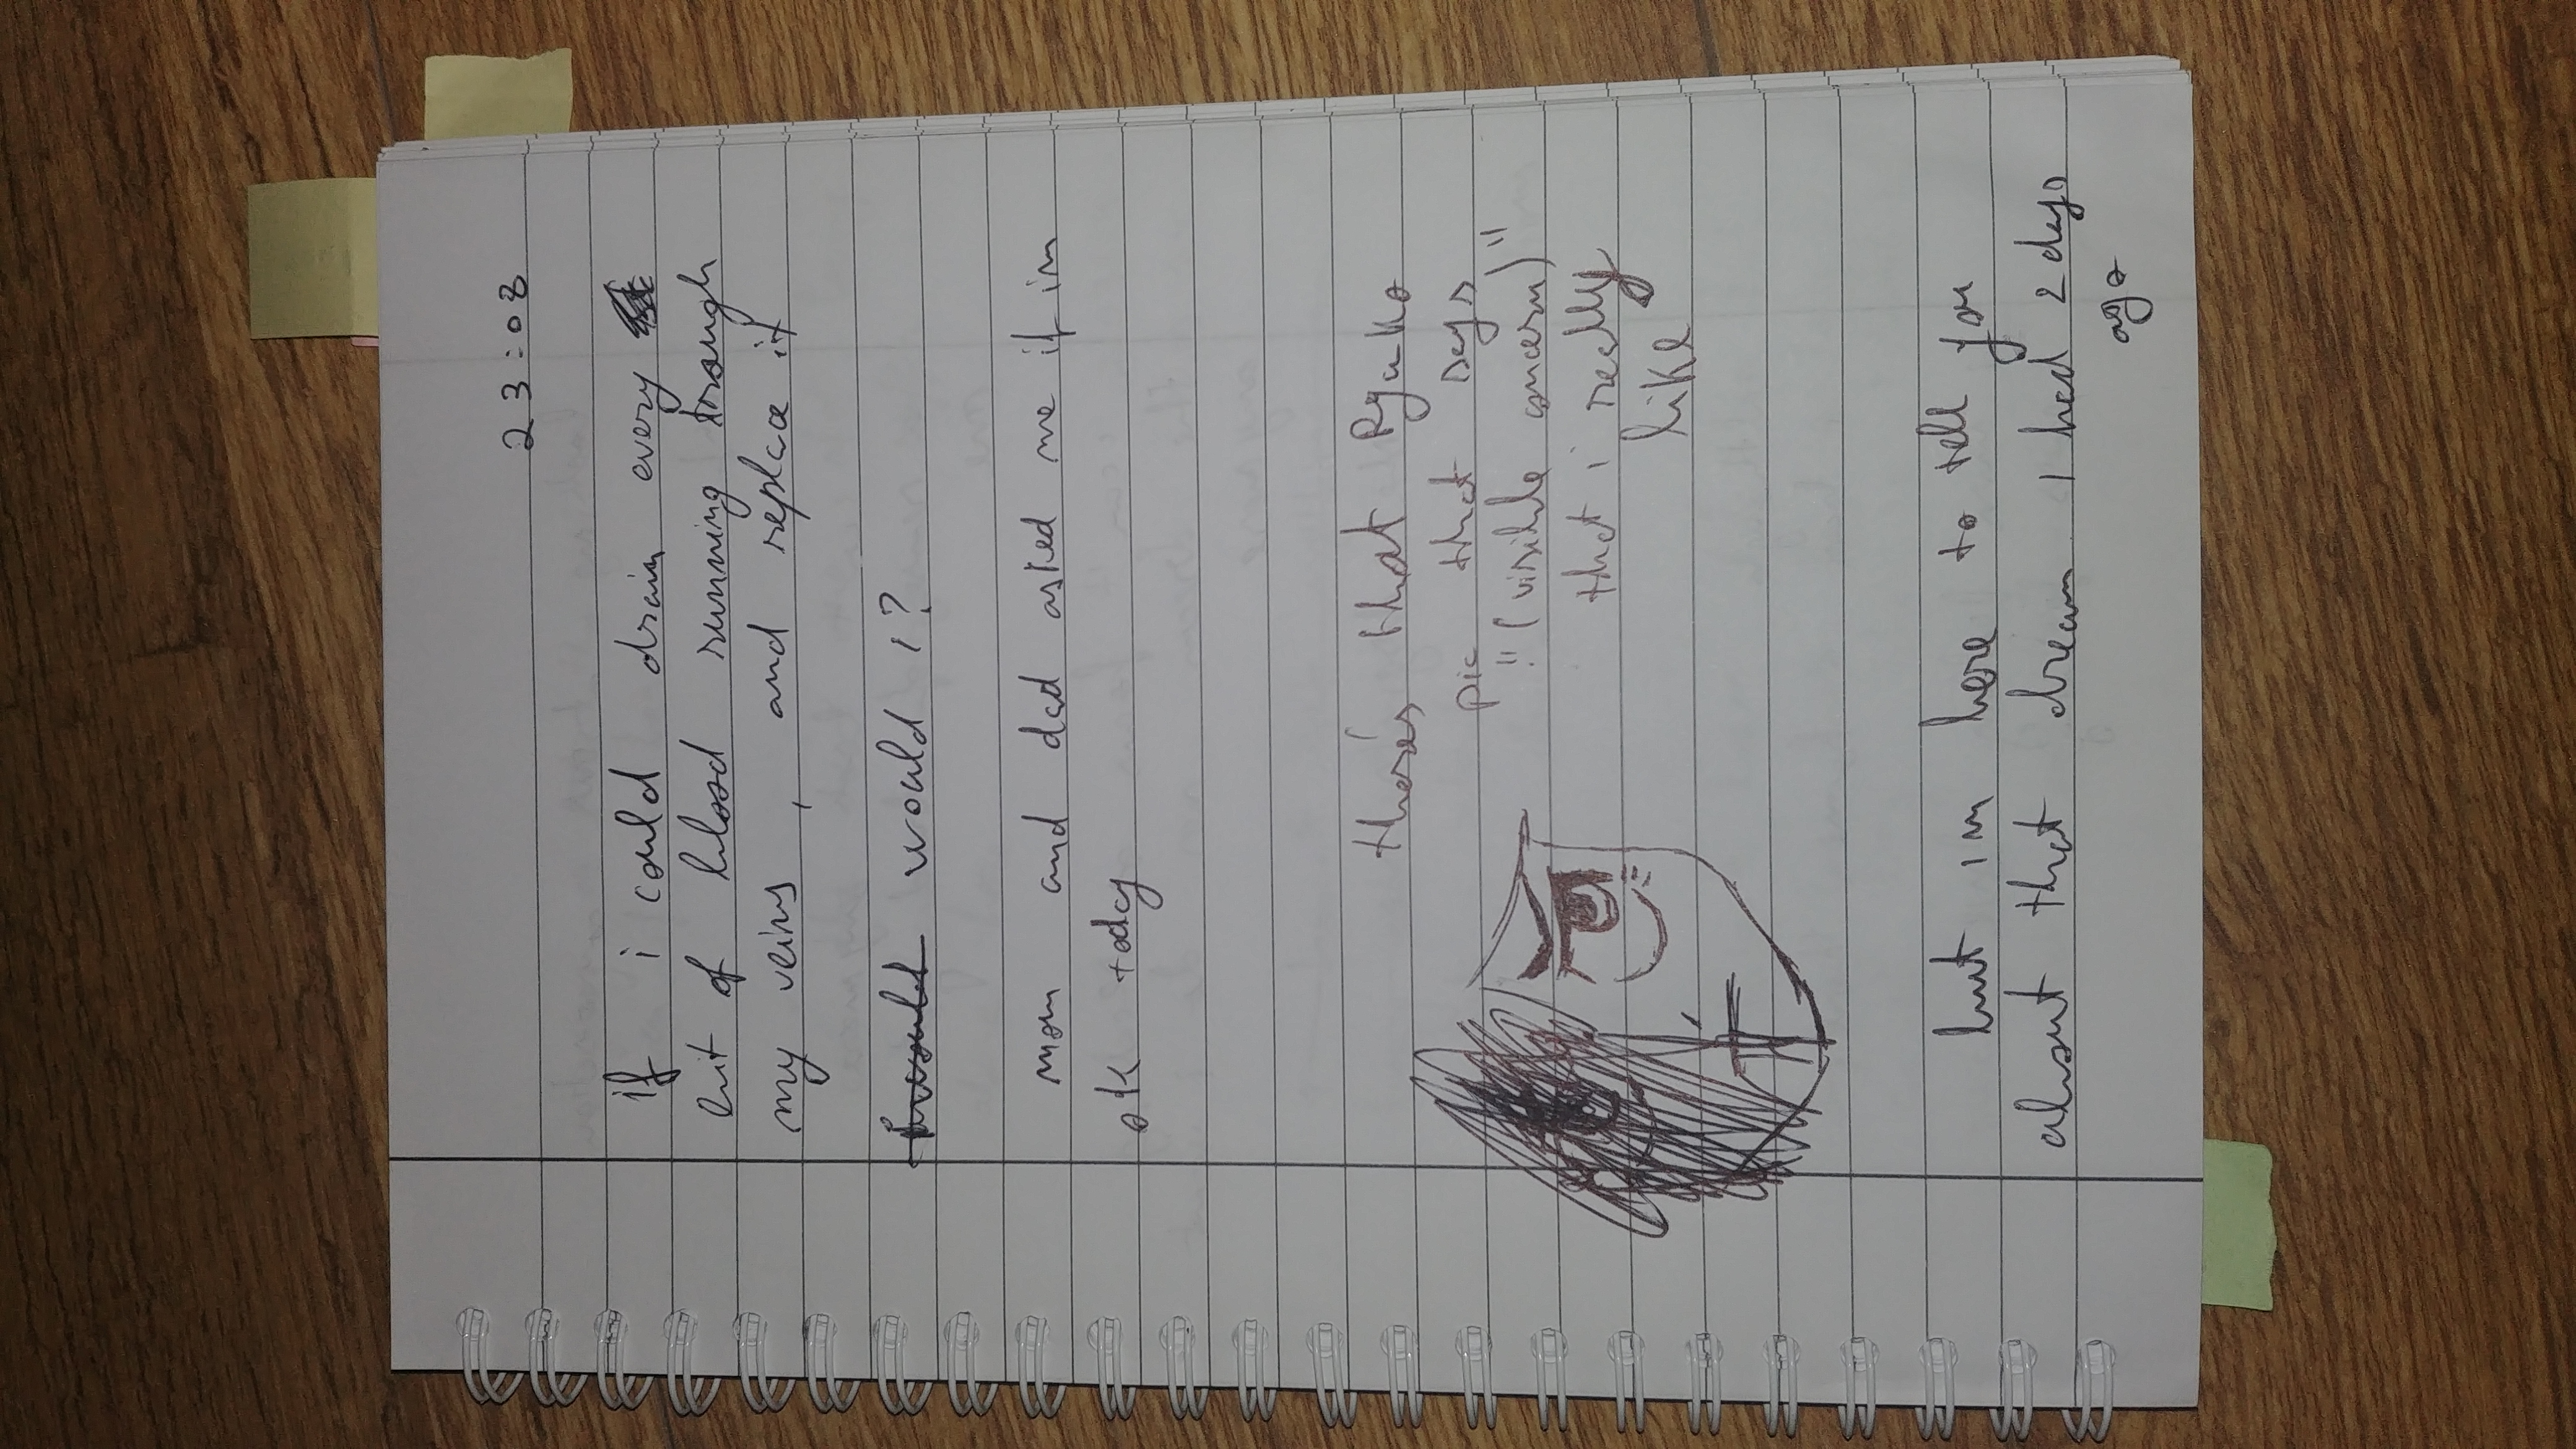 23:08
if i could drain every
bit of blood running trough
my veins, and replace it
would i?
mom and dad asked me if im
ok today
there's that Ryuko
pic that says
"(visible concern)"
that i really
like
but im here to tell you
about that dream I had 2 days
ago